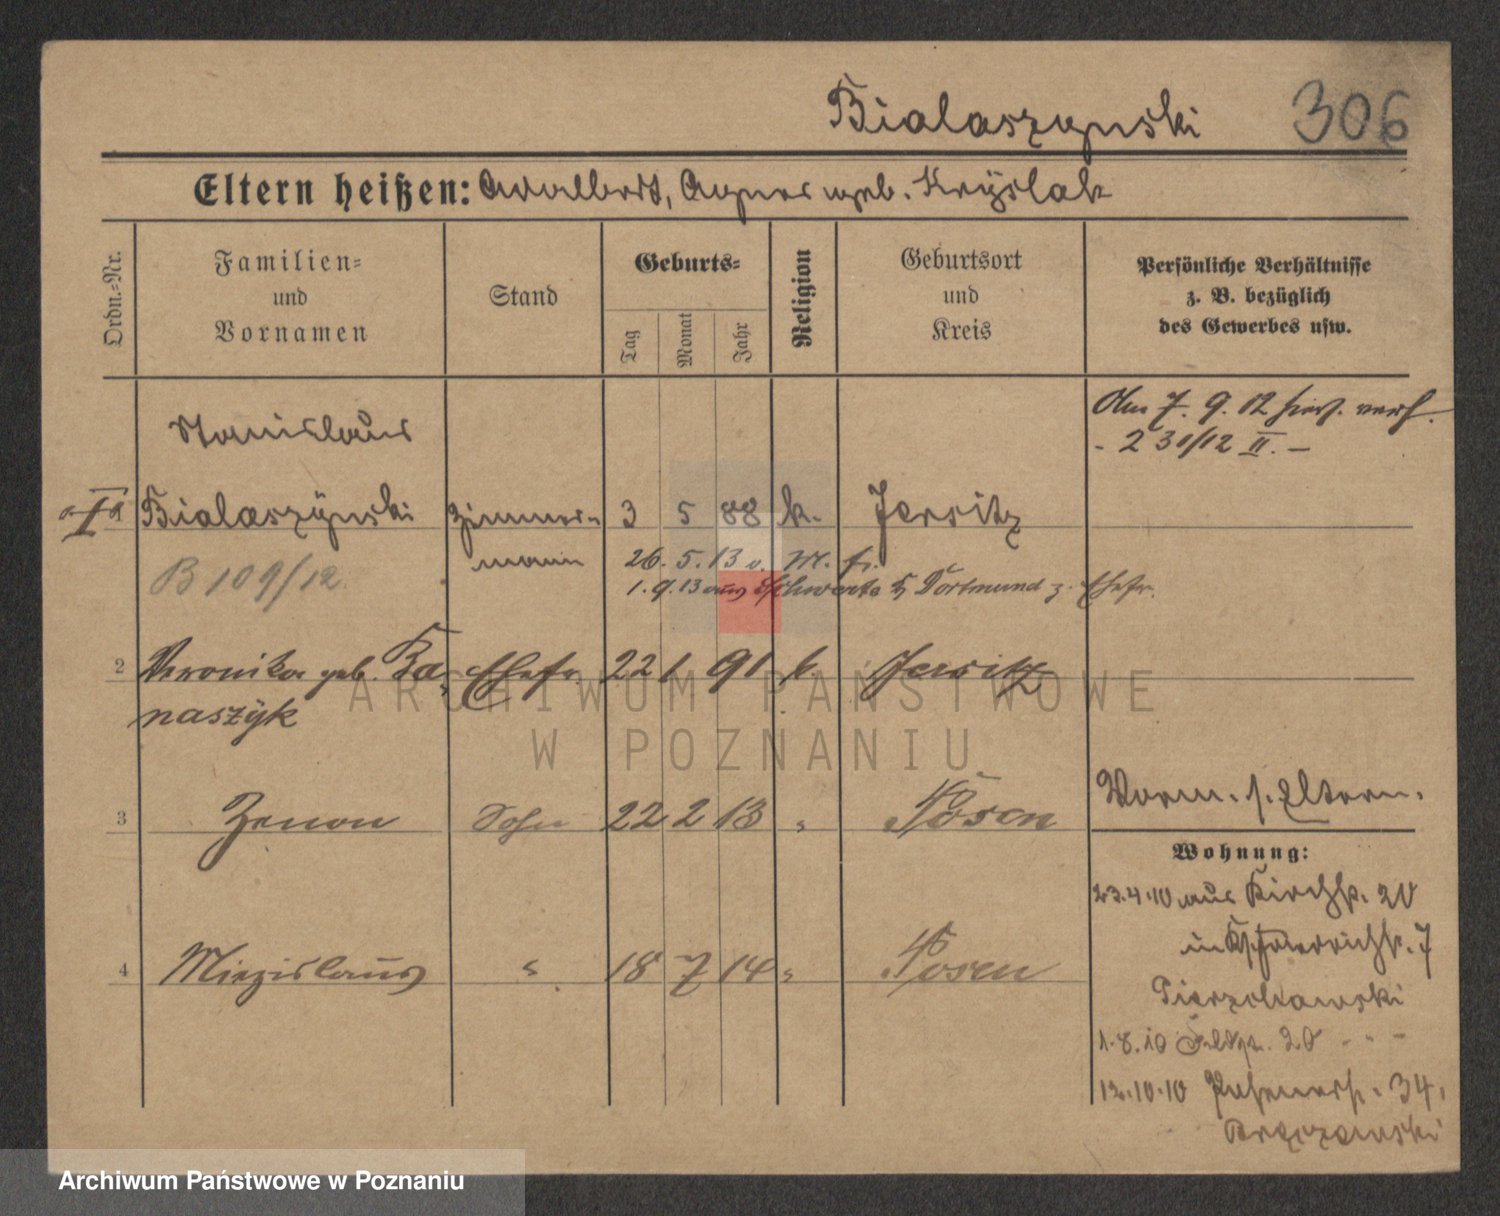 Bialaszynski 306
Eltern heißen: Adalbert, Agnes geb. Kryslak
Ordn.=Nr.
Familien=
und
Vornamen
Stand
Geburts=
Tag
Monat
Jahr
Religion
Geburtsort
und
Kreis
Persönliche Verhältnisse
z. B. bezüglich
des Gewerbes usw.
Am 7. 9. 12 hies. verh.
- 231/12 II. -
Stanislaus
Bialaszÿnski Zimmer- 3 5 88 k. Jersitz
mann
B 109/12
26. 5. 13 v. M. fr.
1. 9. 13 aus Schwerte Dortmund z. Ehefr.
2 Veronika geb. Ba- Ehefr. 22 1 91 k. Jersitz
naszÿk
3 Zenon Sohn 22 2 13 " Posen
Vorm. s. Eltern.
Wohnung:
23.4.10 aus Kirchstr. 20
in 7
4 Miezislaus " 18 7 14 " Posen
1.8.10 20 " " -
12.10.10 34,
ARCHIWUM PAŃSTWOWE
W POZNANIU
Archiwum Państwowe w Poznaniu